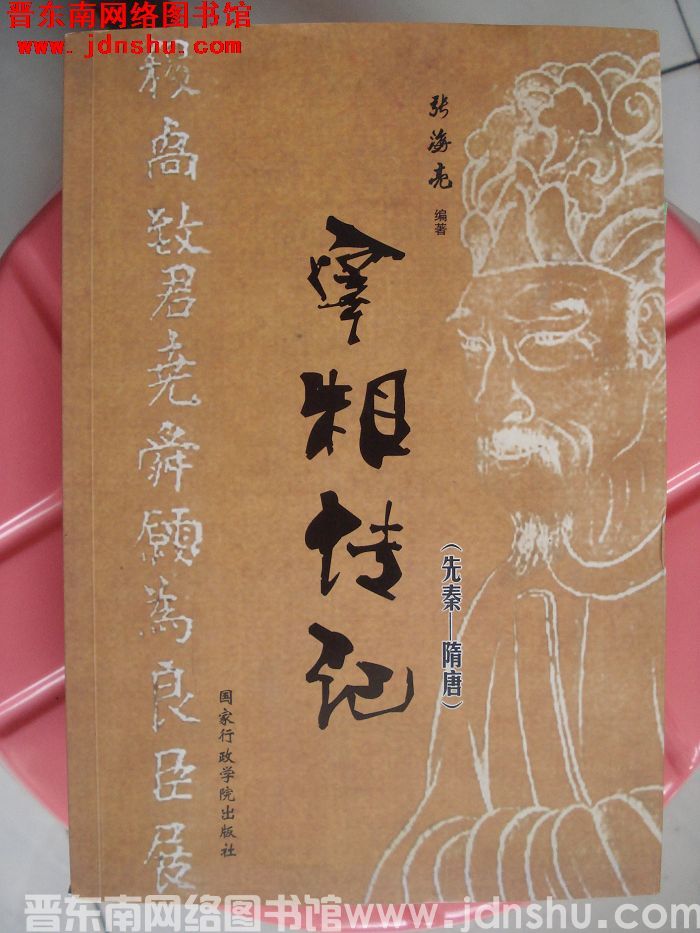 晋东南网络图书馆
www.jdnshu.com
稷卨致君堯舜願為良臣展
张海亮 编著
宰相传记
（先秦—隋唐）
国家行政学院出版社
晋东南网络图书馆www.jdnshu.com